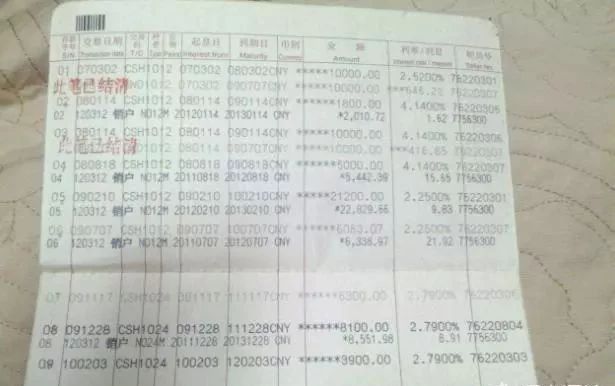 存款序号 交易日期 交易码 种类 存期 起息日 到期日 币别 金 额 利率/利息 柜员号
S/N Transaction date T/C Type Period Interest from Maturity Currency Amount Teller No.
01 070302 CSH1012 070302 080302CNY *****10000.00 2.5200% 76220301
此笔已结清 090707 CNY 10000.00 76220307
02 080114 CSH1012 080114 090114 CNY ******1800.00 4.1400% 76220306
02 120312 销户 N012M 20120114 20130114 CNY *2,010.72 1.62 7756300
03 080114 CSH1012 080114 090114 CNY *****10000.00 4.1400% 76220306
此笔已结清 CNY *****10000.00 76220307
04 080818 CSH1012 080818 090818 CNY ******5000.00 4.1400% 76220306
04 120312 销户 N012M 20110818 20120818 CNY *5,442.39 15.65 7756300
05 090210 CSH1012 090210 100210CNY *****21200.00 2.2500% 76220301
05 120312 销户 N012M 20120210 20130210 CNY *22,829.66 9.83 7756300
06 090707 CSH1012 090707 100707CNY 2.2500% 76220307
06 120312 销户 N012M 20110707 20120707 CNY *6,338.97 21.92 7756300
07 091117 CSH1024 091117 111117CNY ******6300.00 2.7900% 76220306
08 091228 CSH1024 091228 111228CNY ******8100.00 2.7900% 76220804
08 120312 销户 N024M 20111228 20131228 CNY *8,551.98 8.91 7756300
09 100203 CSH1024 100203 120203CNY ******3900.00 2.7900% 76220303